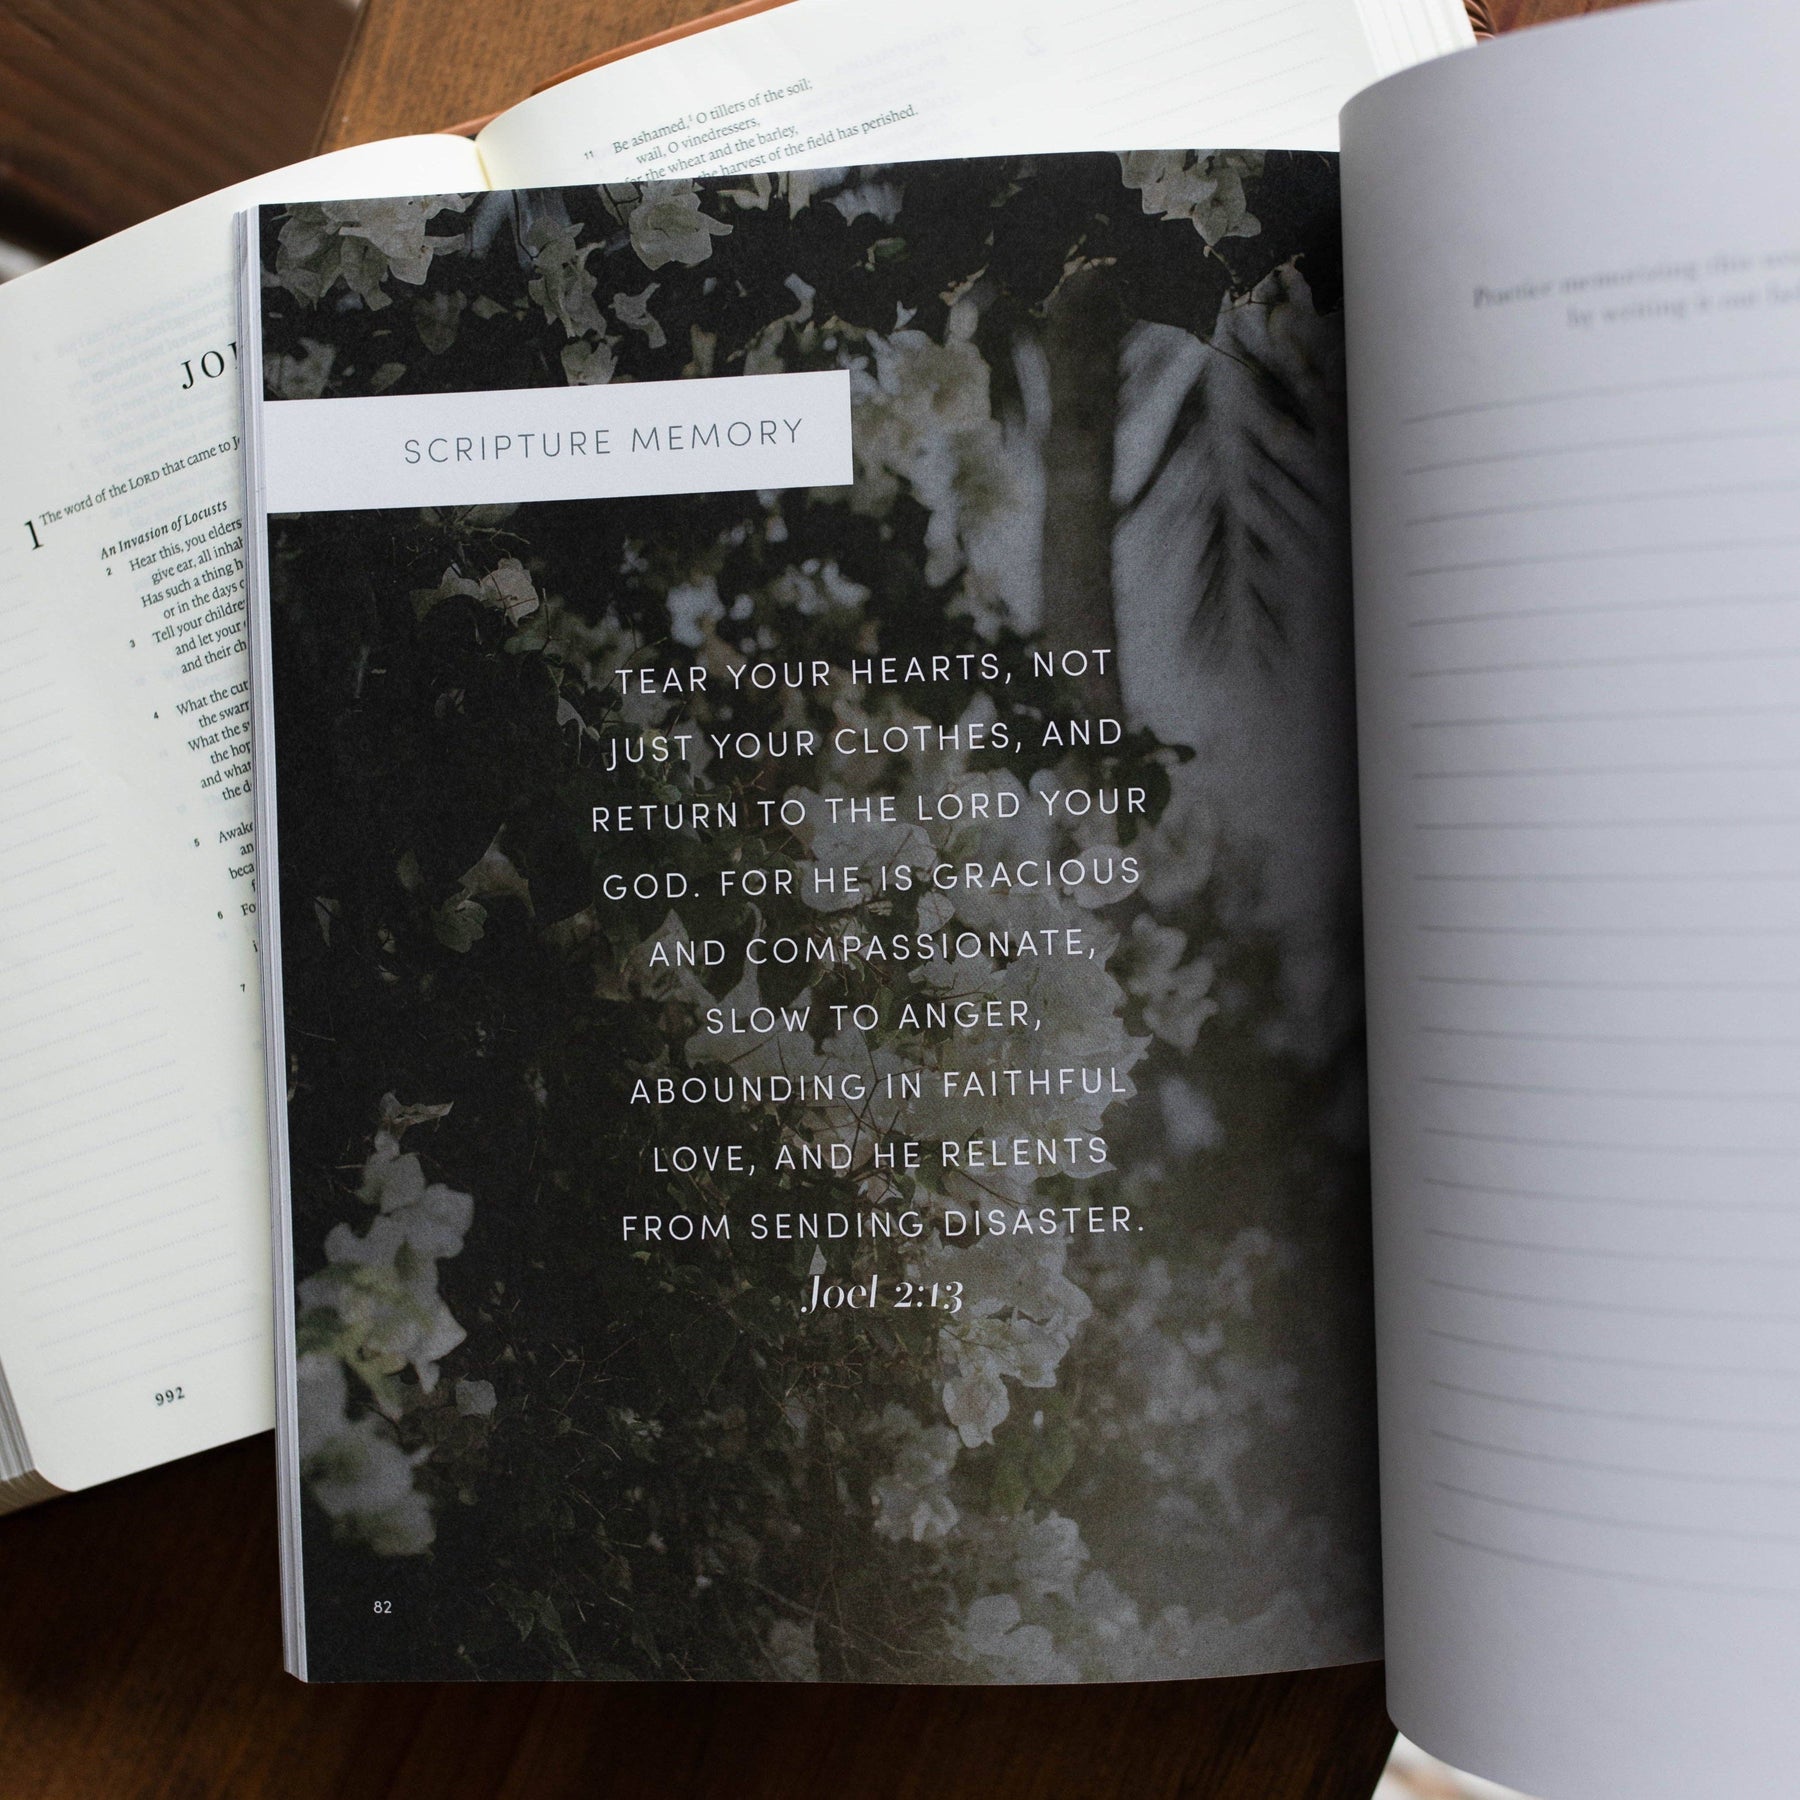 11 Be ashamed,¹ O tillers of the soil;
wail, O vinedressers,
for the wheat and the barley,
the harvest of the field has perished.
JOE
1 The word of the LORD that came to
An Invasion of Locusts
2 Hear this, you elders
give ear, all
Has such a thing
or in the days
3 Tell your
and let your
and their
4 What the
the
What the
the
and what
the
5
6
7
992
SCRIPTURE MEMORY
TEAR YOUR HEARTS, NOT
JUST YOUR CLOTHES, AND
RETURN TO THE LORD YOUR
GOD. FOR HE IS GRACIOUS
AND COMPASSIONATE,
SLOW TO ANGER,
ABOUNDING IN FAITHFUL
LOVE, AND HE RELENTS
FROM SENDING DISASTER.
Joel 2:13
82
Practice memorizing this
by writing it out